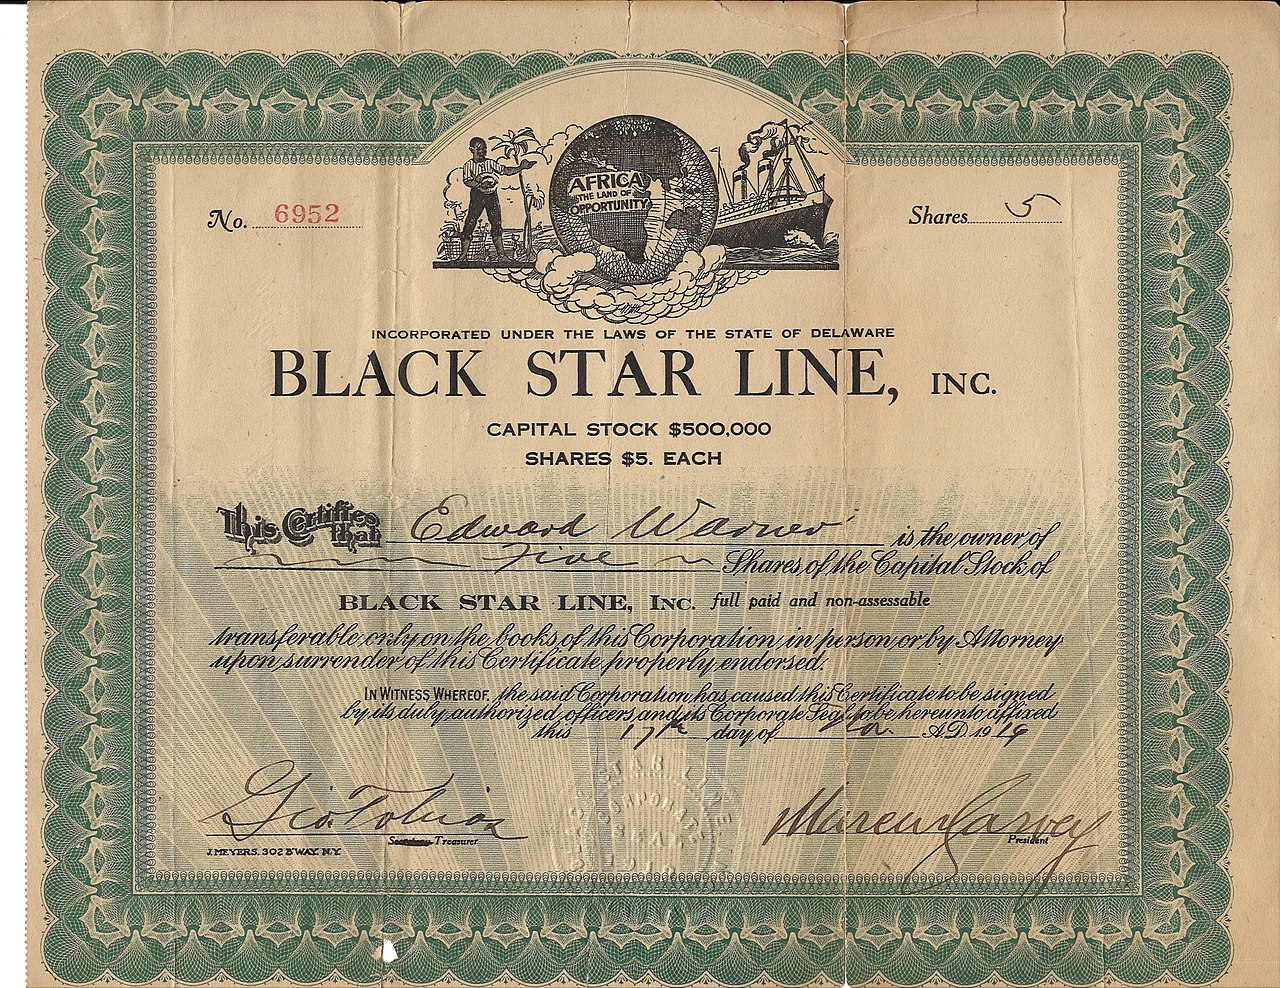 No. 6952
Shares 5
AFRICA
THE LAND OF
OPPORTUNITY
INCORPORATED UNDER THE LAWS OF THE STATE OF DELAWARE
BLACK STAR LINE, INC.
CAPITAL STOCK $500,000
SHARES $5. EACH
This Certifies that Edward Warner is the owner of
Five Shares of the Capital Stock of
BLACK STAR LINE, INC. full paid and non-assessable
transferable only on the books of this Corporation in person or by Attorney
upon surrender of this Certificate properly endorsed.
IN WITNESS WHEREOF, the said Corporation has caused this Certificate to be signed
by its duly authorized officers and its Corporate Seal to be hereunto affixed
this 17th day of A.D. 1919
STAR LINE
CORPORATE
SEAL
1919
Geo. Tobias
Secretary Treasurer
Marcus Garvey
President
J. MEYERS. 302 B'WAY. N.Y.